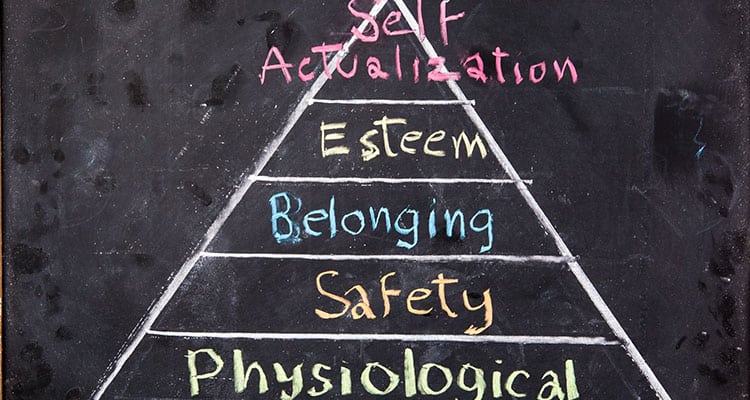 Self
Actualization
Esteem
Belonging
Safety
Physiological